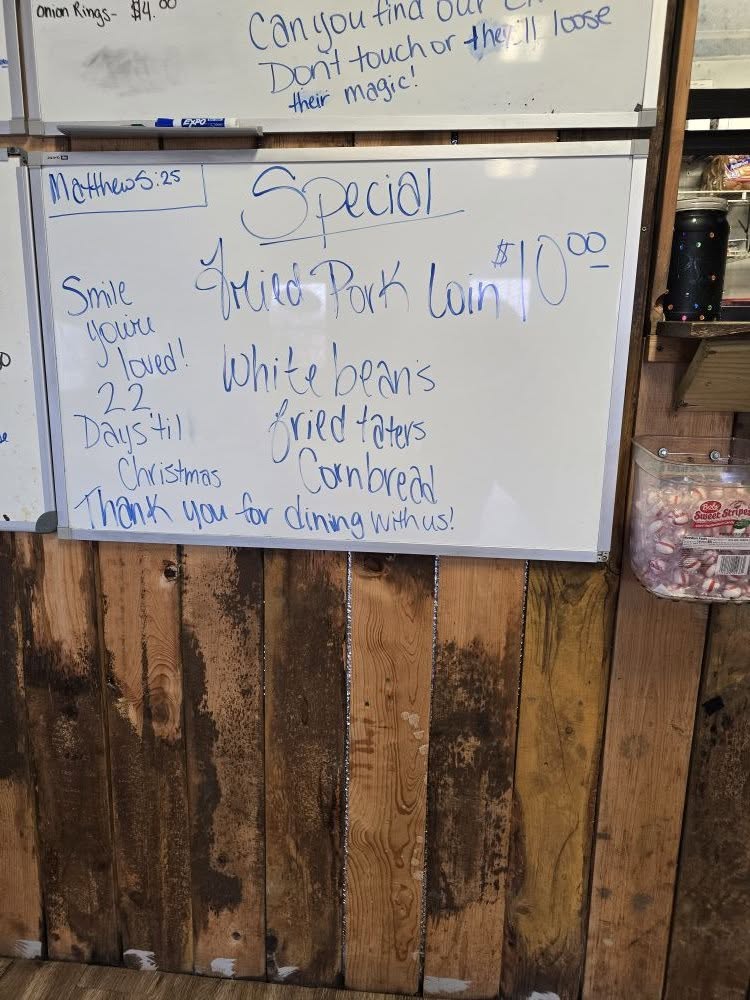 onion Rings- $4.00
Can you find our
Don't touch or they'll loose
their magic!
EXPO
Matthew 5:25
Special
Fried Pork Loin $10.00
Smile
you're
loved!
22
Days 'til
Christmas
White beans
fried taters
Cornbread
Thank you for dining with us!
Bob's
Sweet Stripes